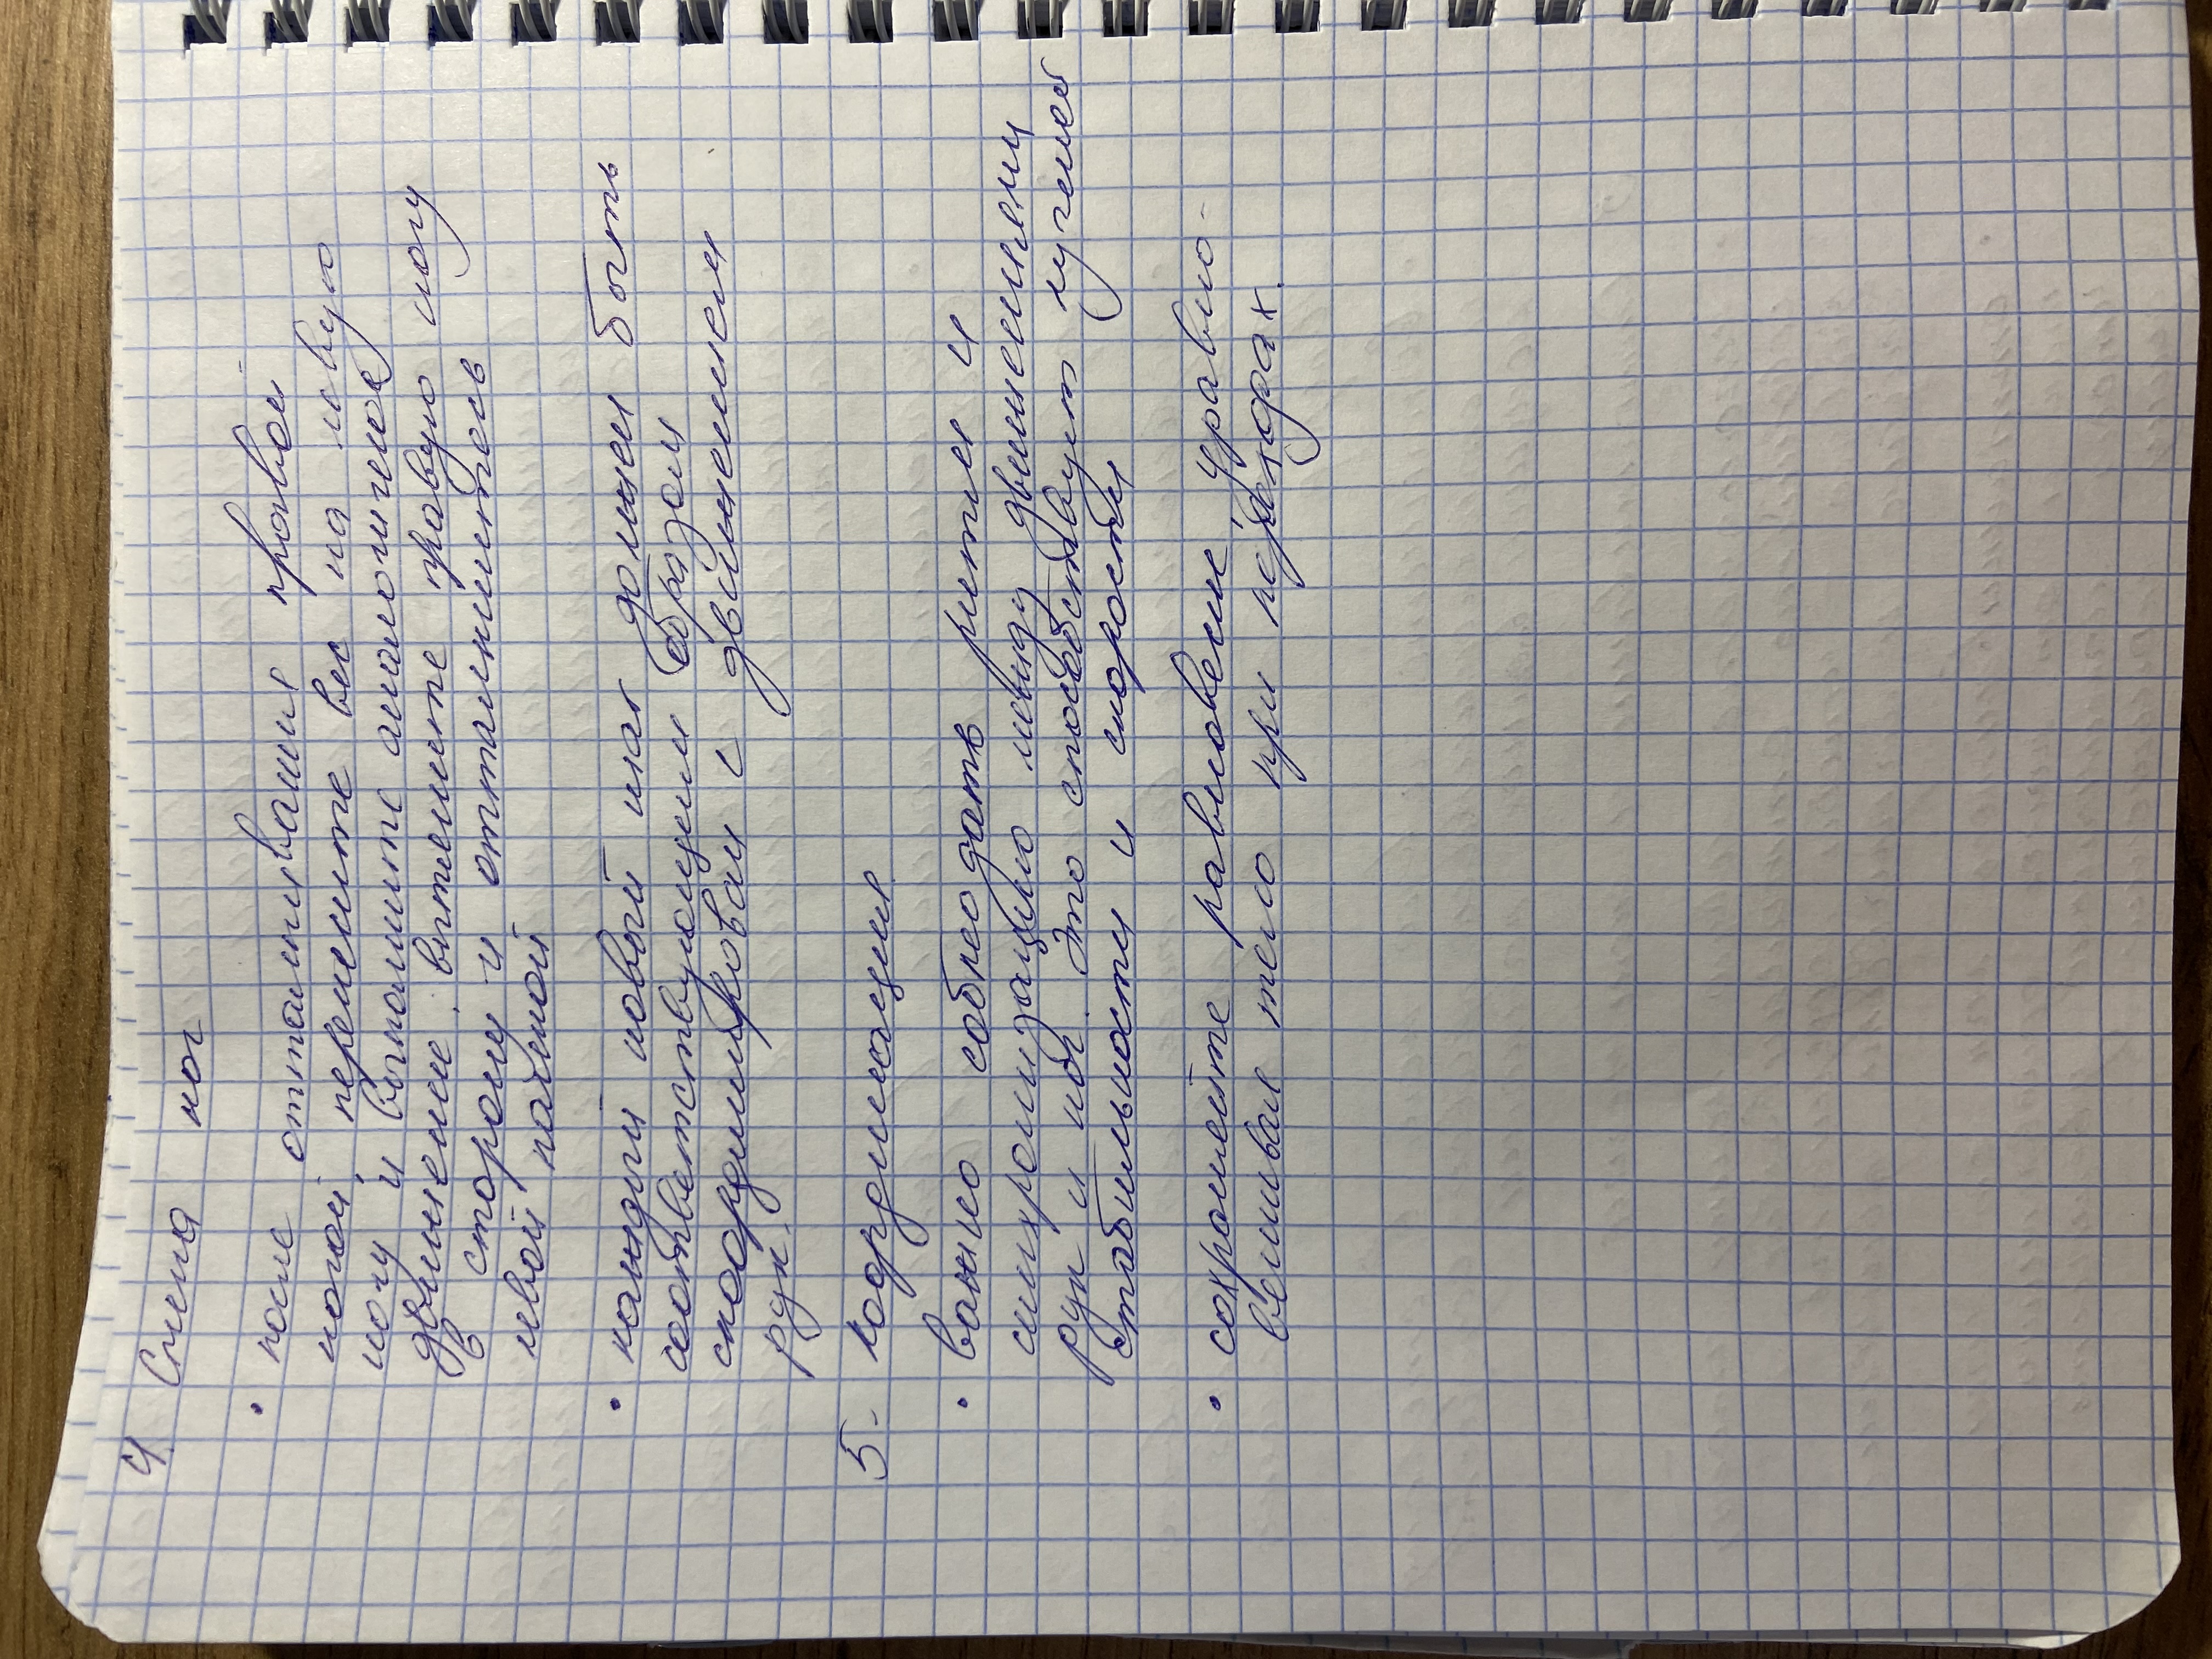 4. Смена ног
• после отталкивания правой
ногой перемените вес на левую
ногу и выполните аналогичное
движение: вытяните правую ногу
в сторону и отталкивайтесь
левой палкой
• каждый новый шаг должен быть
соответствующим образом
скоординирован с движением
рук.
5. Координация
• важно соблюдать ритм и
синхронизацию между движениями
рук и ног. Это способствует лучшей
стабильности и скорости
• сохраняйте равновесие, уравно-
вешивая тело при переходах.